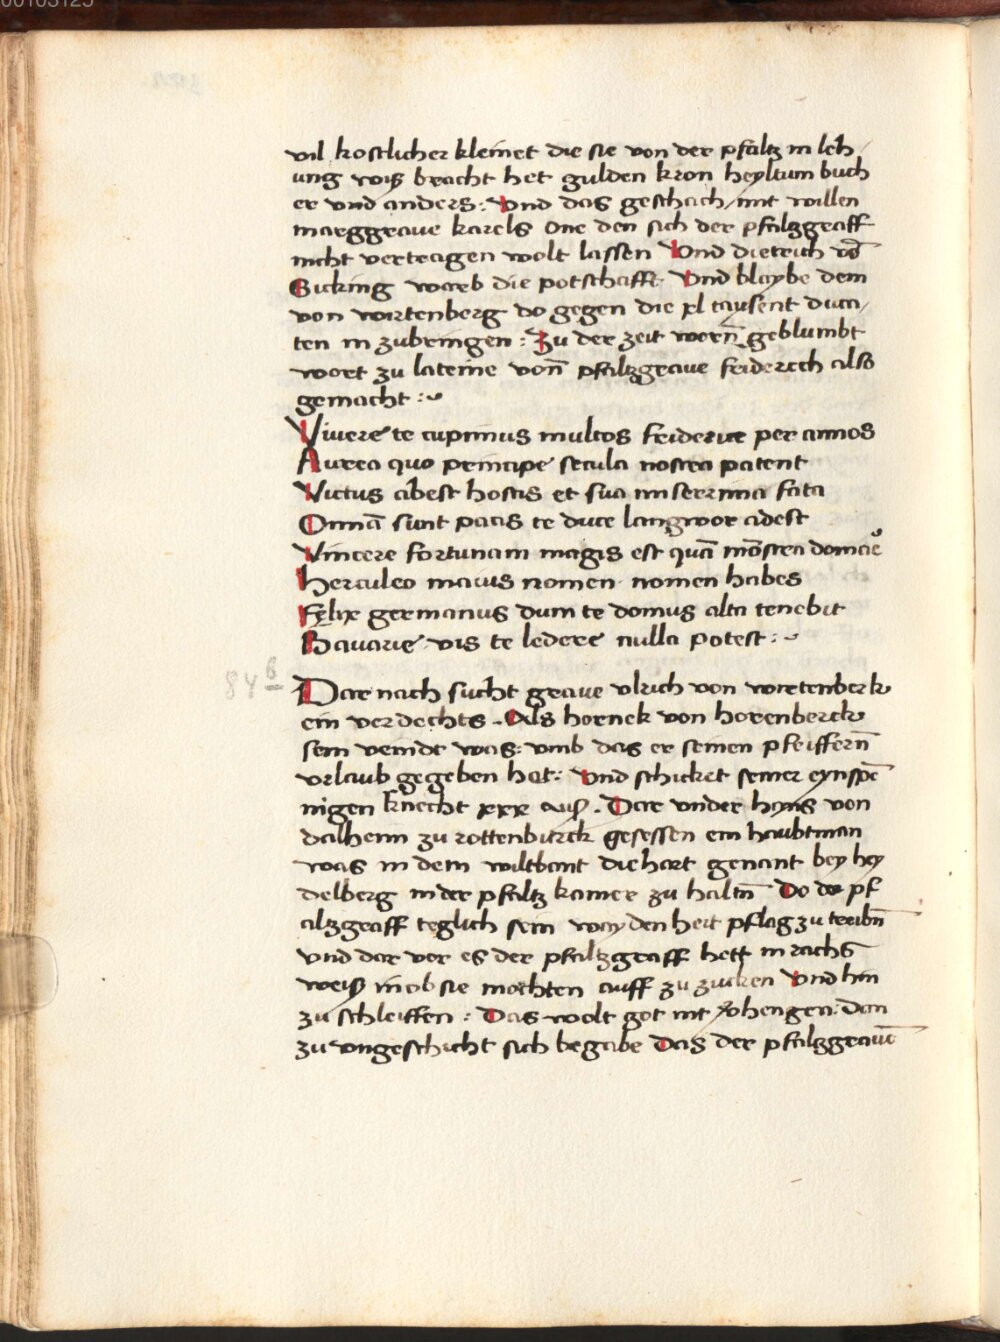 00105125
vil kostlicher kleinet die sie von der pfaltz in leh /
ung wiß bracht het gulden kron heyltum buch
er vnd anders : Vnd das geschach / mit willen
marggraue karels one den sich der pfaltzgraff
nicht vertragen wolt lassen Vnd dietrich vō
Sicking warb die potschafft Vnd blaybe dem
von wirtenberg do gegen die xl tausent duca /
ten in zubringen : Zu der zeit wern̄ geblumbt
wort zu lateine von̄ pfaltzgraue friderich also
gemacht :~
Viuere te cupimus multos friderice per annos
Aurea quo principe secula nostra patent
Victus abest hostis et sua miserrima fata
Omnīa sunt pacis te duce langwor adest
Vincere fortunam magis est quā mōstra domare
Herculeo maius nomen nomen habes
Felix germanus dum te domus alta tenebit
Bauarie vis te ledere nulla potest :~
84 6
Dar nach sucht graue vlrich von wirtenberk
ein verdechts . Als hornek von horenberck
sein veinde was : vmb das er seinen pfeiffern̄
vrlaub gegeben het : Vnd schicket seiner eynspē
nigen knecht xxx auß . Dar vnder hyns von
dalheim zu rottenburck gesessen ein haubtman
was in dem wiltbant die hart genant bey hey
delberg in der pfaltz kamer zu haltn̄ Do der pf
altzgraff teglich sein waydenheit pflag zu treibn̄
vnd dar vor es der pfaltzgraff hett in rachs
weiß in ob sie mochten auff zu zucken Vnd hin
zu schleiffen : Das wolt got nit v̄hengen : Dan
zu vngeschicht sich begabe Das der pfaltzgraue